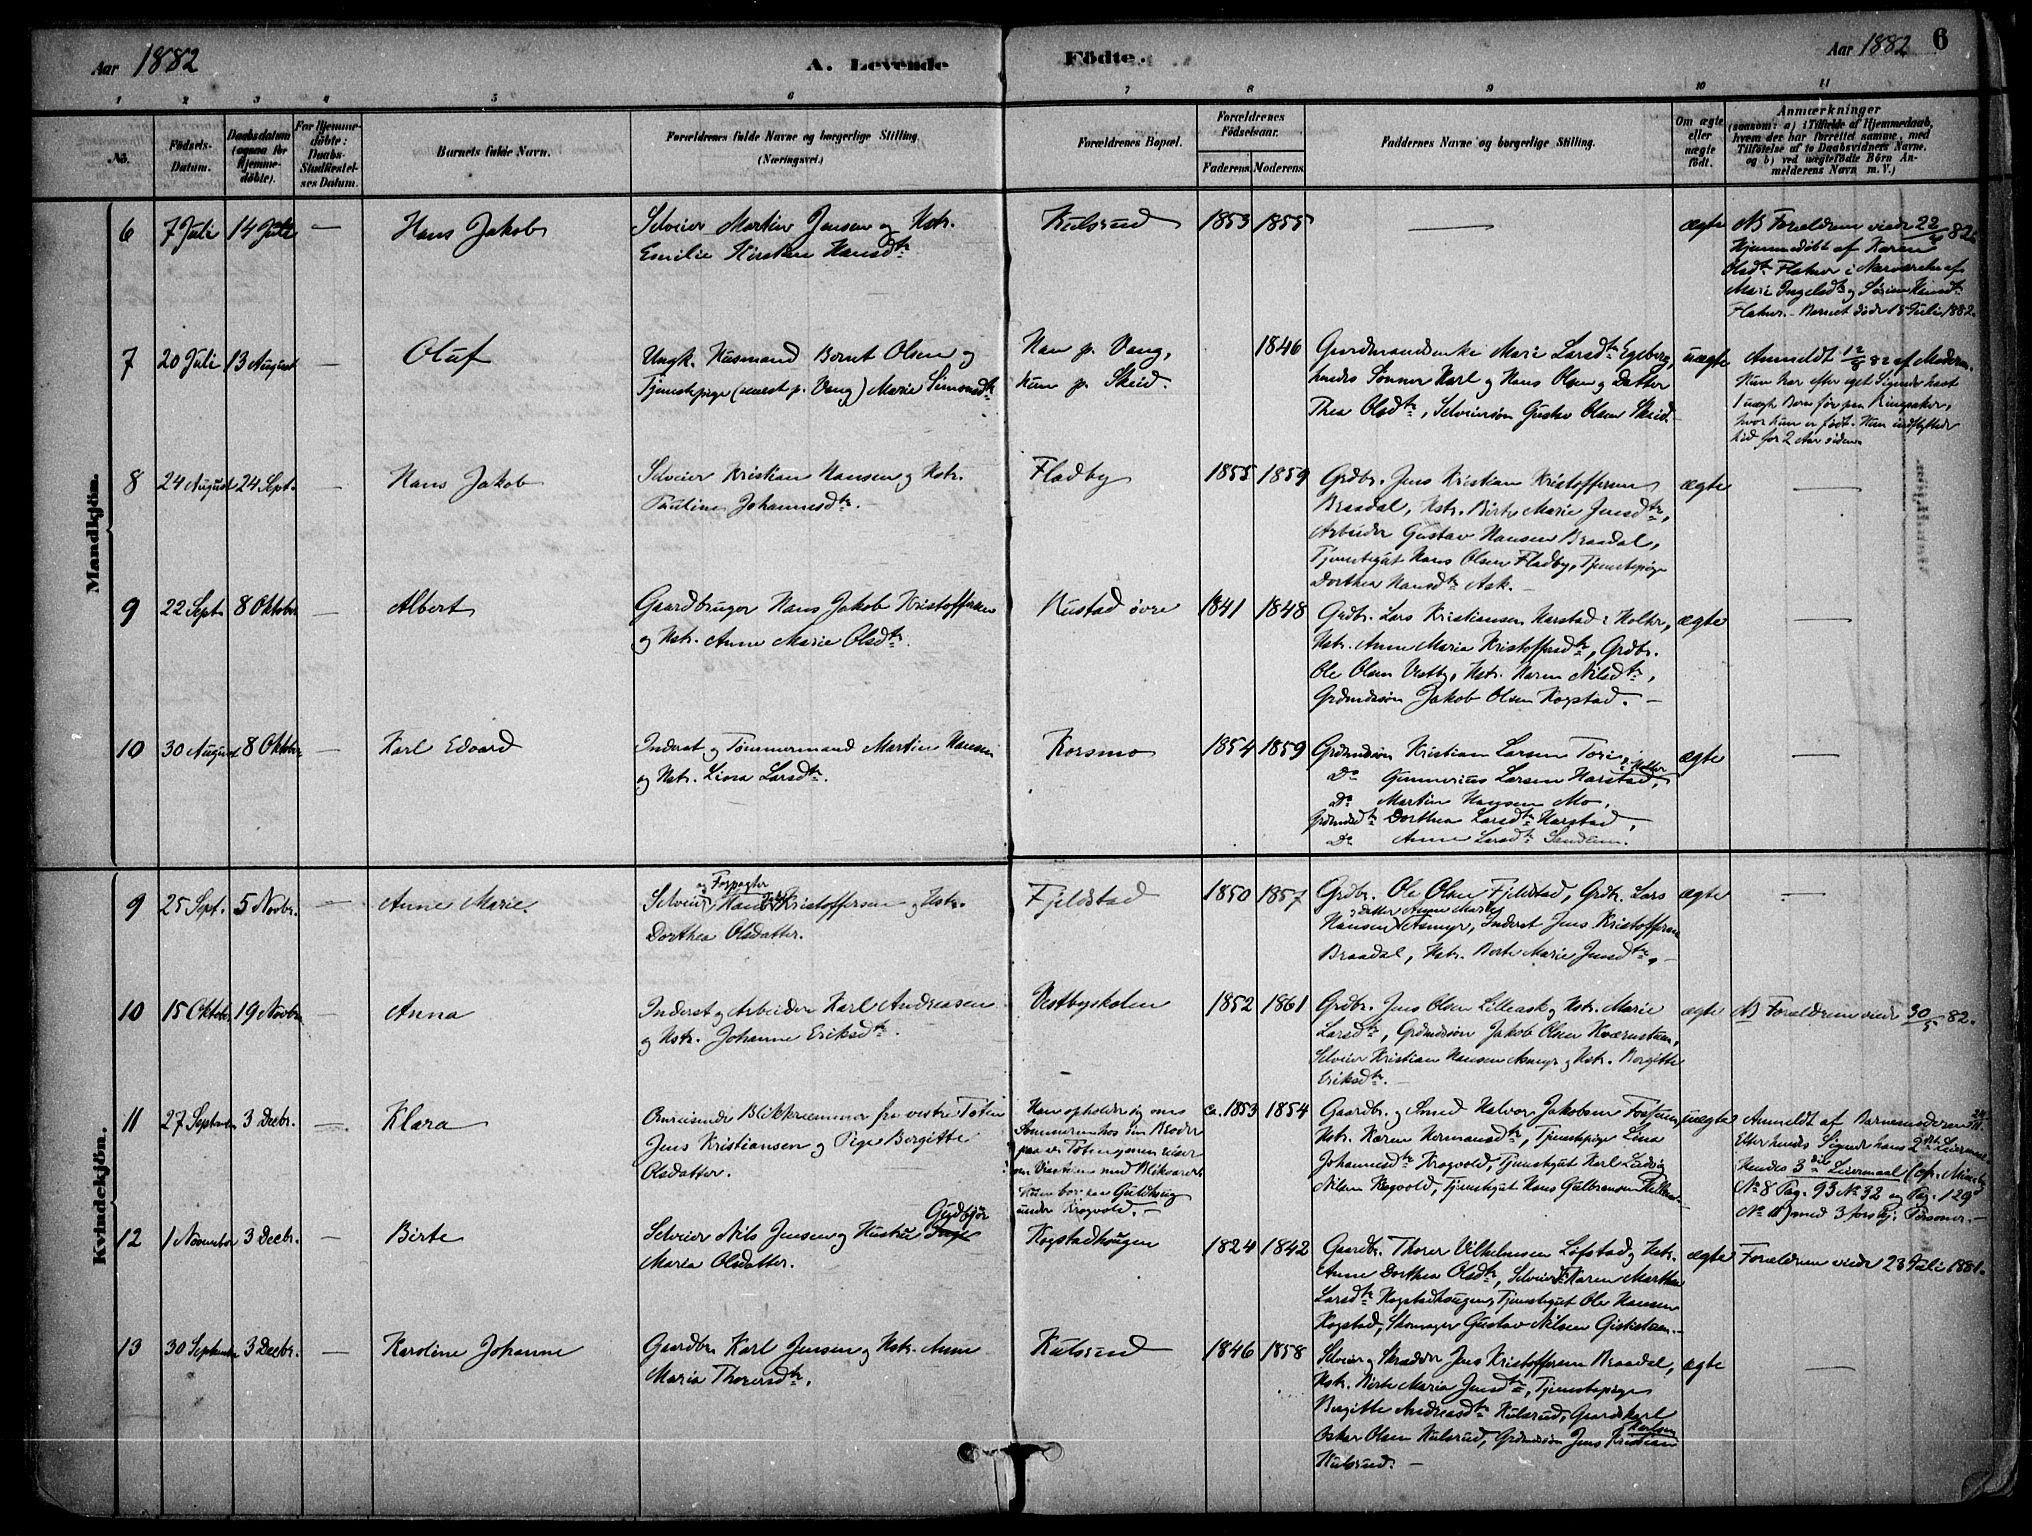 Aar 1882
A. Levende
Födte.
Aar 1882
6
1 2 3 4 5 6 7 8 9 10 11
No.
Födsels-
Datum.
Daabsdatum
(ogsaa for
Hjemme-
döbte).
For Hjemme-
döbte:
Daabs-
Stadfæstel-
ses Datum.
Barnets fulde Navn.
Forældrenes fulde Navne og borgerlige Stilling.
(Næringsvei.)
Forældrenes Bopæl.
Forældrenes
Födselsaar.
Faderens.
Moderens.
Faddernes Navne og borgerlige Stilling.
Om ægte
eller
uægte
födt.
Anmærkninger
(saasom: a) i Tilfælde af Hjemmedaab,
hvem der har forrettet samme, med
Tilföielse af to Daabsvidners Navne,
og b) ved uægtefödte Börn An-
melderens Navn m. V.)
Mandkjön.
6 7 Juli 14 Juli — Hans Jakob
Selveier Martin Jensen og Kstr.
Emilie Kirstine Hansdtr
Kulsrud 1853 1855 — ægte
NB Forældrene viede 22/4 82.
Hjemmedöbt af Karen
Olsdtr Flatner i Nærværelse af
Flatner. Barnet döde 15 Juli 1882.
7 20 Juli 13 August Oluf
Ungk. Husmand Bernt Olsen og
Tjenestepige (næst p. Vang) Marie Simensdtr
Han p. Vang,
hun p. Skeid.
1846
Gaardmandsenke Mari Larsdtr Egeberg,
hendes Sönner Karl og Hans Olsen og Datter
Thea Olsdtr, Selveiersön Gustav Olsen Skeid.
uægte
Anmeldt 12/8 82 af Moderen.
Hun har efter eget Sigende havt
1 uægte Barn för paa Ringsaker,
hvor hun er födt. Hun indflyttede
hid for 2 Aar siden.
8 24 August 24 Sept. — Hans Jakob
Selveier Kristian Hansen og Kstr.
Pauline Johannesdtr.
Fladby 1855 1859
Grdbr. Jens Kristian Kristoffersen
Braadal, Kstr. Berte Marie Jensdtr,
Arbeider Gustav Hansen Braadal,
Tjenestegut Hans Olsen Fladby, Tjenestepige
Dorthea Hansdtr Ask. —
ægte —
9 22 Sept. 8 Oktober — Albert
Gaardbruger Hans Jakob Kristoffersen
og Kstr. Anne Marie Olsdtr.
Hustad övre 1841 1848
Grdbr. Lars Kristiansen Harstad i Holter,
Kstr. Anne Maria Kristoffersdtr, Grdbr.
Ole Olsen Vestby, Kstr. Karen Nilsdtr,
Grdmdssön Jakob Olsen Kogstad. —
ægte —
10 30 August 8 Oktober — Karl Edvard
Inderst og Tömmermand Martin Hansen
og Kstr. Lina Larsdtr.
Korsmo 1854 1859
Grdmdssön Kristian Larsen
i Holter
Do Gunnerius Larsen Harstad,
Do Martin Hansen Mo,
Grdmdsdtr Dorthea Larsdtr Harstad,
Do Anne Larsdtr
ægte —
Kvindekjön.
9 25 Sept. 5 Novbr. — Anne Marie.
og Forpagter
Selveier Hans Kristoffersen og Kstr.
Dorthea Olsdatter.
Fjeldstad 1850 1857
Grdbr. Ole Olsen Fjeldstad, Grdbr. Lars
og Datter Anne Marie
Hansen Asmyr, Inderst Jens Kristoffersen
Braadal, Kstr. Berte Marie Jensdtr. —
ægte —
10 15 Oktober 19 Novbr. — Anna
Inderst og Arbeider Karl Andreasen
og Kstr. Johanne Eriksdtr.
Vestbyskolen 1852 1861
Grdbr. Jens Olsen Lilleask og Kstr. Marie
Larsdtr, Grdmdssön Jakob Olsen Kværnstuen,
Selveier Kristian Hansen Asmyr og Kstr. Borgitte
Eriksdtr. —
ægte
NB Forældrene viede 30/5 82.
11 27 Septem. 3 Decbr. — Klara
Omreisende Blikkræmmer fra vestre Toten
Jens Kristiansen og Pige Borgitte
Olsdatter.
Han opholder sig om
Sommeren hos sin Broder
paa Toten, reiser
om Vinteren med Blikvarer.
Hun bor paa Guldhaug
under Krogvold. —
ca. 1853 1854
Gaardbr. og Smed Halvor Jakobsen
Kstr. Karen Hermansdtr, Tjenestepige Lina
Johannesdtr Krogvold, Tjenestegut Karl Ludvig
Nilsen Krogvold, Tjenestegut Hans Gulbrandsen
uægte
Anmeldt af Barnemoderen
Efter hendes Sigende hans 2det Leiermaal.
Hendes 3die Leiermaal (cfr. Minist.
No 8 Pag. 93 No 32 og Pag. 129
No 11) med 3 forskj. Personer. —
12 1 November 3 Decbr. — Birte
Gudbjör
Selveier Nils Jensen og Hustru
Maria Olsdatter.
Kogstadhaugen 1824 1842
Gaardbr. Thorer Vilhelmsen Löfstad og Kstr.
Anne Dorthea Olsdtr, Selveier Karen Marthea
Larsdtr Kogstadhaugen, Tjenestegut Ole Hansen
Kogstad, Skomager Gustav Nilsen
ægte
Forældrene viede 23 Juli 1881.
13 30 September 3 Decbr. — Karoline Johanne
Gaardbr. Karl Jensen og Kstr. Anne
Maria Thorersdtr.
Kulsrud 1846 1858
Selveier og Skrædder Jens Kristoffersen Braadal,
Kstr. Berte Maria Jensdtr, Tjenestepige
Borgitte Andreasdtr Kulsrud, Gaardskarl
Oskar Olsen Kulsrud, Grdmdssön Jens Kristian
Karlsen
Kulsrud. —
ægte —